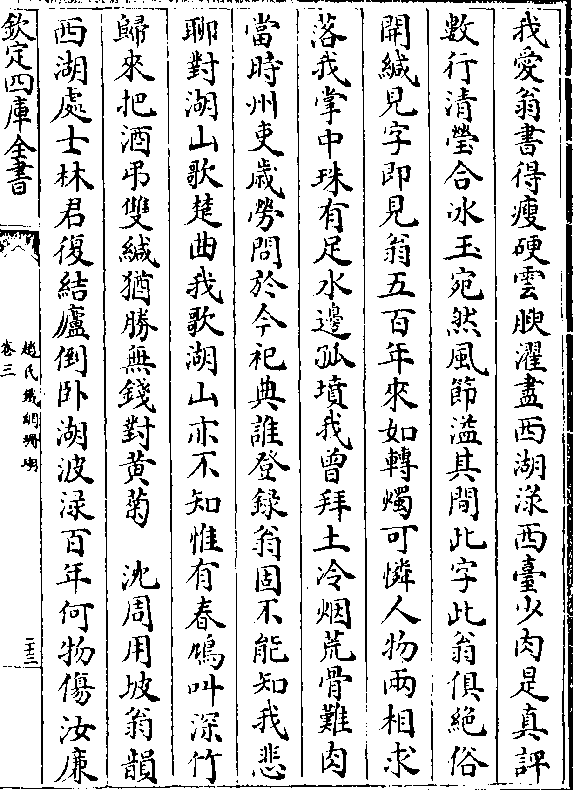 我愛翁書得瘦硬雲腴濯盡西湖渌西臺少肉是真評
數行清瑩合冰玉宛然風節溢其間此字此翁俱絶俗
開緘見字即見翁五百年來如轉燭可憐人物兩相求
落我掌中珠有足水邊孤墳我曾拜土冷烟荒骨難肉
當時州吏歲勞問於今祀典誰登録翁固不能知我悲
聊對湖山歌楚曲我歌湖山亦不知惟有春鳩叫深竹
歸來把酒弔雙緘猶勝無錢對黄菊　沈周用坡翁韻
西湖處士林君復結廬倒卧湖波渌百年何物傷汝廉
欽定四庫全書
趙氏鐵網珊瑚
卷三
二十三